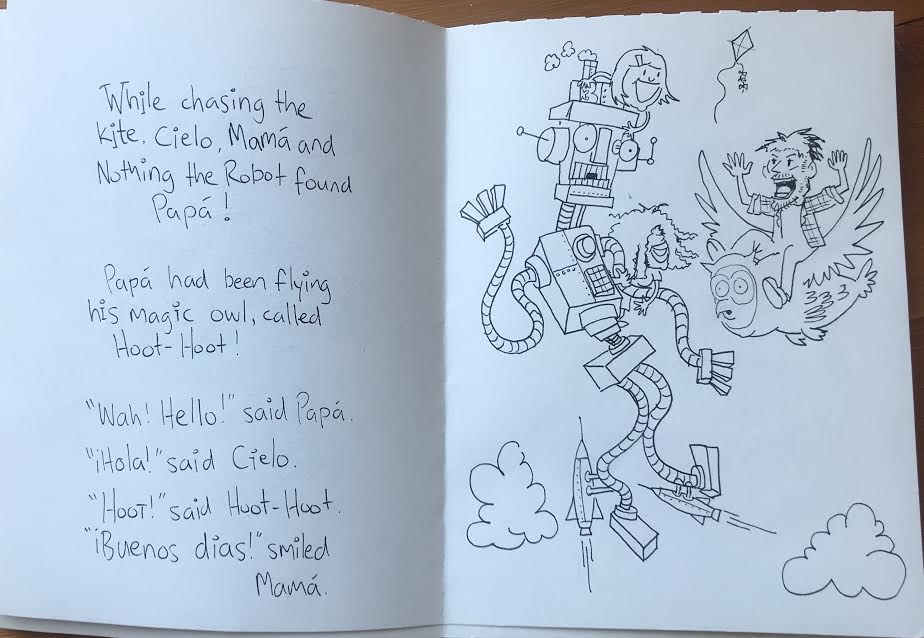 While chasing the
kite, Cielo, Mamá and
Nothing the Robot found
Papá!
Papá had been flying
his magic owl, called
Hoot-Hoot!
"Wah! Hello!" said Papá.
"¡Hola!" said Cielo.
"Hoot!" said Hoot-Hoot.
"¡Buenos dias!" smiled
Mamá.